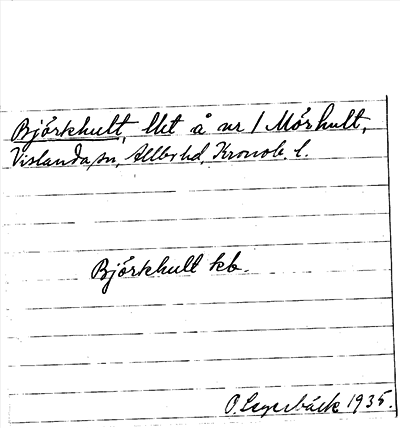 Björkhult, lht å nr 1 Mörhult,
Vislanda sn, Allbo hd, Kronob. l.
Björkhult kb.
1935.